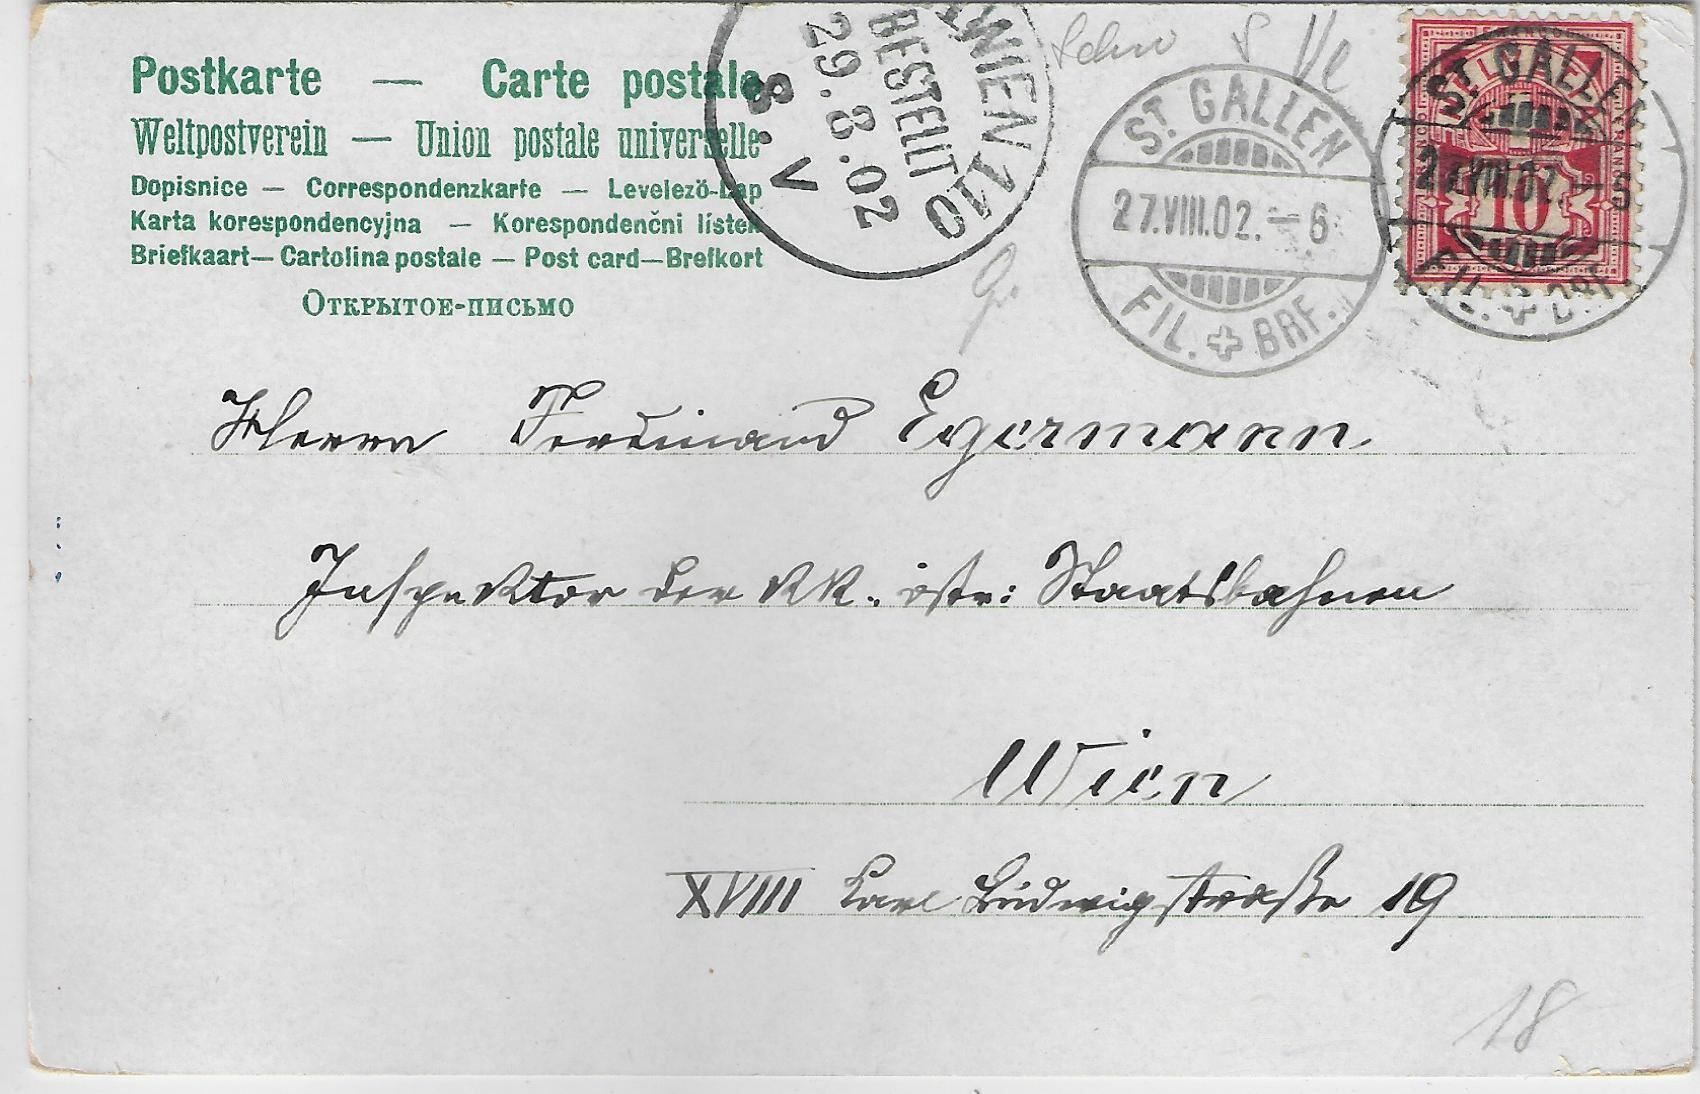 Postkarte — Carte postale
Weltpostverein — Union postale universelle
Dopisnice — Correspondenzkarte — Levelező-Lap
Karta korespondencyjna — Korespondenční lístek
Briefkaart — Cartolina postale — Post card — Brefkort
Открытое-письмо
WIEN 110
BESTELLT
29.8.02
8.V
ST. GALLEN
27.VIII.02.–6
FIL. + BRF.
ST. GALLEN
27.VIII.02.–6
FIL. + BRF.
10
Herrn Ferdinand Egermann
Inspektor der KK. östr: Staatsbahnen
Wien
XVIII Karl Ludwigstraße 19
18